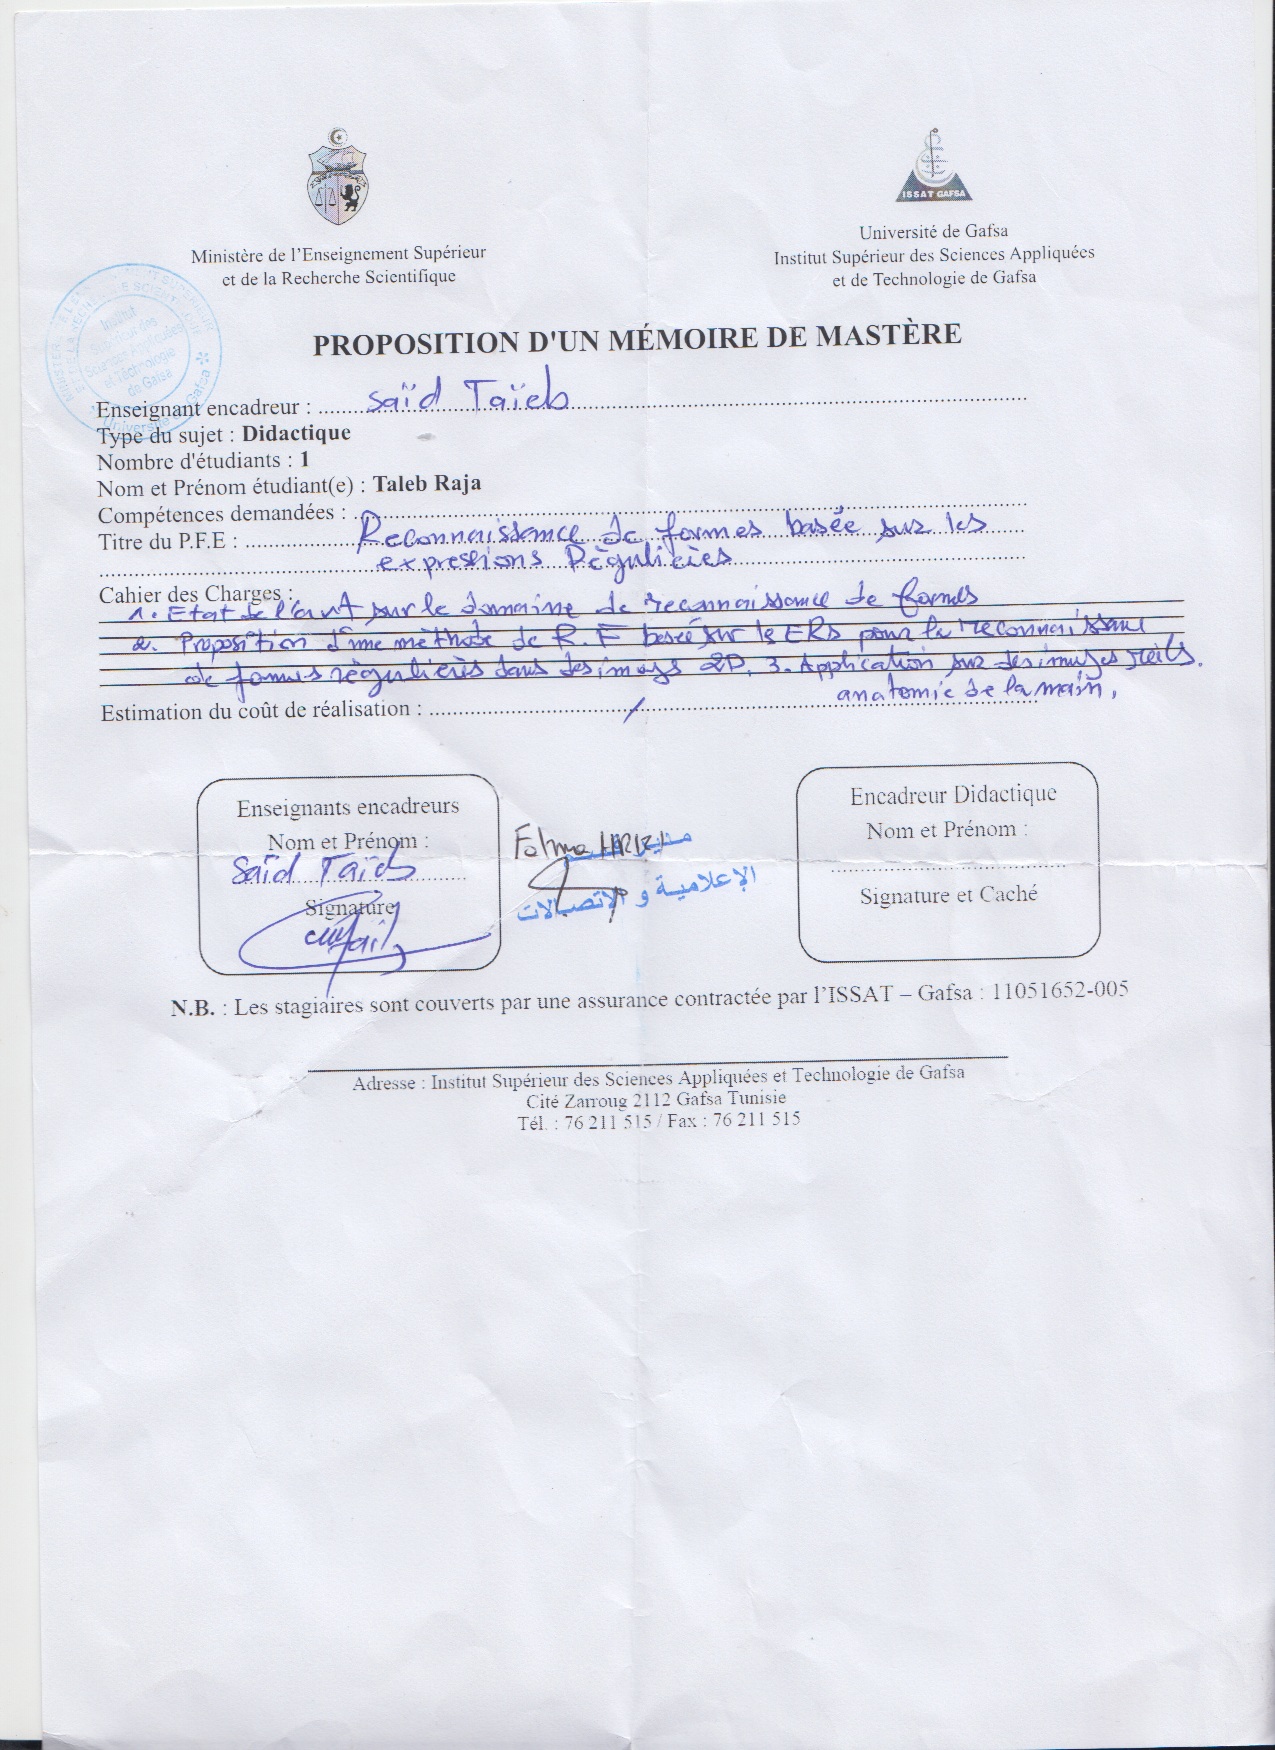 ISSAT GAFSA
Ministère de l'Enseignement Supérieur
et de la Recherche Scientifique
Université de Gafsa
Institut Supérieur des Sciences Appliquées
et de Technologie de Gafsa
Institut
Sup. des
Sciences Appliquées
et Technologie
de Gafsa
Université de Gafsa
PROPOSITION D'UN MÉMOIRE DE MASTÈRE
Enseignant encadreur : Saïd Taïeb
Type du sujet : Didactique
Nombre d'étudiants : 1
Nom et Prénom étudiant(e) : Taleb Raja
Compétences demandées :
Titre du P.F.E : Reconnaissance de formes basée sur les
expressions Régulières
Cahier des Charges :
1. Etat de l'art sur le domaine de reconnaissance de formes
2. Proposition d'une méthode de R.F basée sur les ERs pour la reconnaissance
de formes régulières dans des images 2D. 3. Application sur des images réels.
anatomie de la main.
Estimation du coût de réalisation : /
Enseignants encadreurs
Nom et Prénom :
Saïd Taïeb
Signature
Fatma
الإعلامية و الاتصالات
Encadreur Didactique
Nom et Prénom :
Signature et Caché
N.B. : Les stagiaires sont couverts par une assurance contractée par l'ISSAT – Gafsa : 11051652-005
Adresse : Institut Supérieur des Sciences Appliquées et Technologie de Gafsa
Cité Zarroug 2112 Gafsa Tunisie
Tél. : 76 211 515 / Fax : 76 211 515